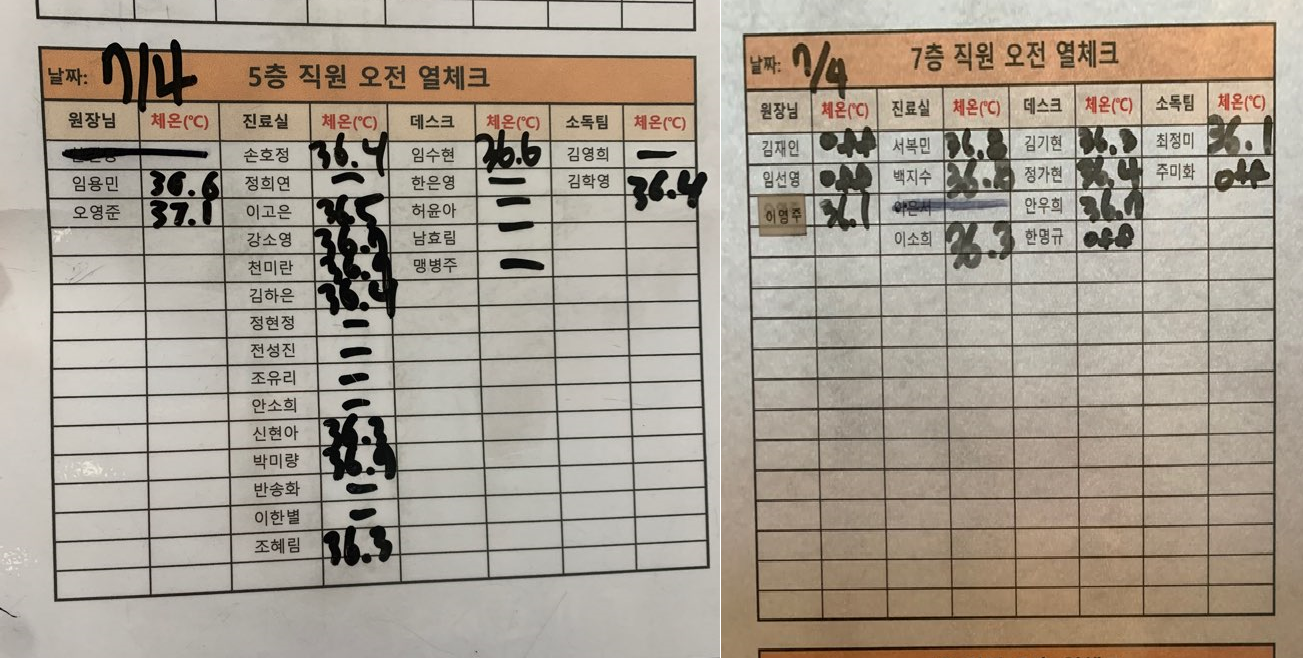 날짜: 7/4 5층 직원 오전 열체크
원장님 체온(℃) 진료실 체온(℃) 데스크 체온(℃) 소독팀 체온(℃)
손호정 36.4 임수현 36.6 김영희 —
임용민 36.6 정희연 — 한은영 — 김학영 36.4
오영준 37.1 이고은 36.5 허윤아 —
강소영 남효림 —
천미란 맹병주 —
김하은 36.4
정현정 —
전성진 —
조유리 —
안소희 —
신현아 36.3
박미량
반송화 —
이한별 —
조혜림 36.3
날짜: 7/4 7층 직원 오전 열체크
원장님 체온(℃) 진료실 체온(℃) 데스크 체온(℃) 소독팀 체온(℃)
김재인 off 서복민 36.8 김기현 36.3 최정미 36.1
임선영 off 백지수 정가현 36.4 주미화 off
이영주 36.1 안우희 36.7
이소희 36.3 한명규 off